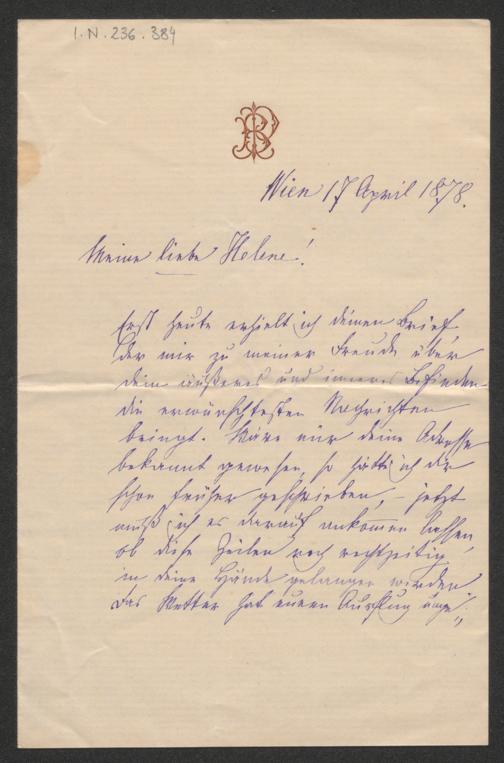 I.N. 236.384
Wien 17 April 1878.
Meine liebe Helene!
Erst heute erhielt ich deinen Brief
der mir zu meiner Freude über
dein äußeres und inneres Befinden
die erwünschtesten Nachrichten
bringt. Wäre mir deine Adresse
bekannt gewesen, so hätte ich dir
schon früher geschrieben, – jetzt
muß ich es darauf ankommen lassen,
ob diese Zeilen noch rechtzeitig
in deine Hände gelangen werden
Das Wetter hat euren Ausflug